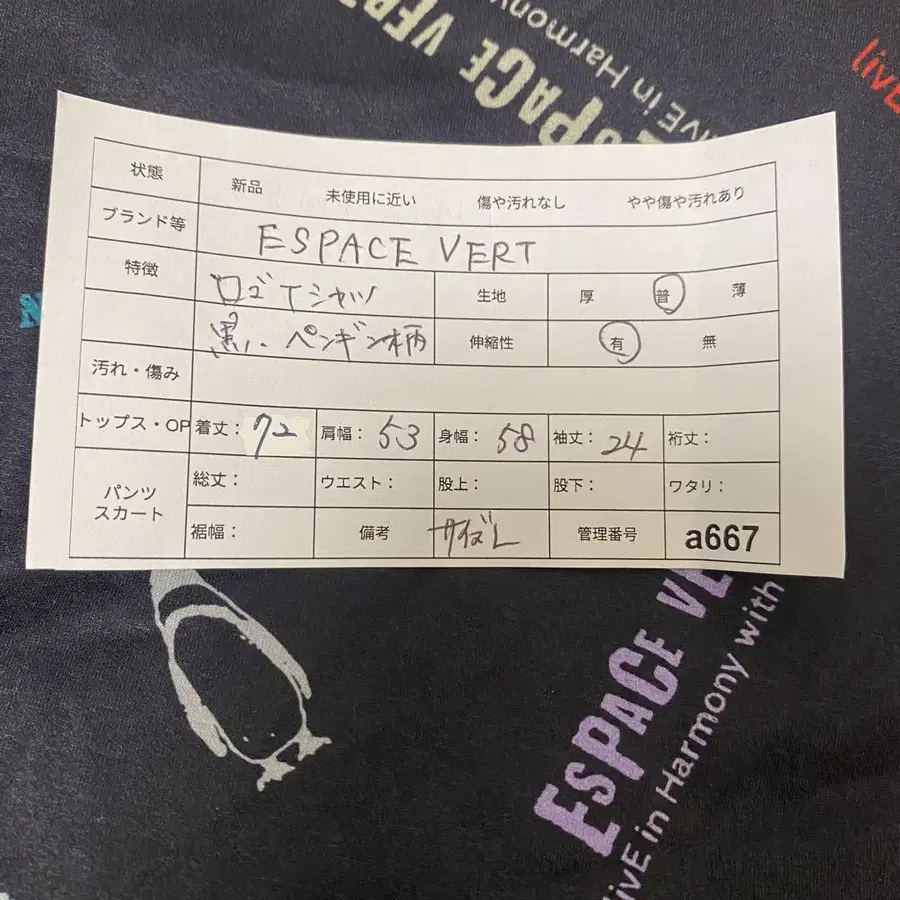 ESPACE VERT
LivE in Harmony
ESPACE
LivE in Harmony
livE
状態 新品 未使用に近い 傷や汚れなし やや傷や汚れあり
ブランド等 ESPACE VERT
特徴 ロゴTシャツ 生地 厚 普 薄
黒、ペンギン柄 伸縮性 有 無
汚れ・傷み
トップス・OP 着丈: 72 肩幅: 53 身幅: 58 袖丈: 24 裄丈:
パンツ 総丈: ウエスト: 股上: 股下: ワタリ:
スカート
裾幅: 備考 サイズL 管理番号 a667
ESPACE VE
livE in Harmony with